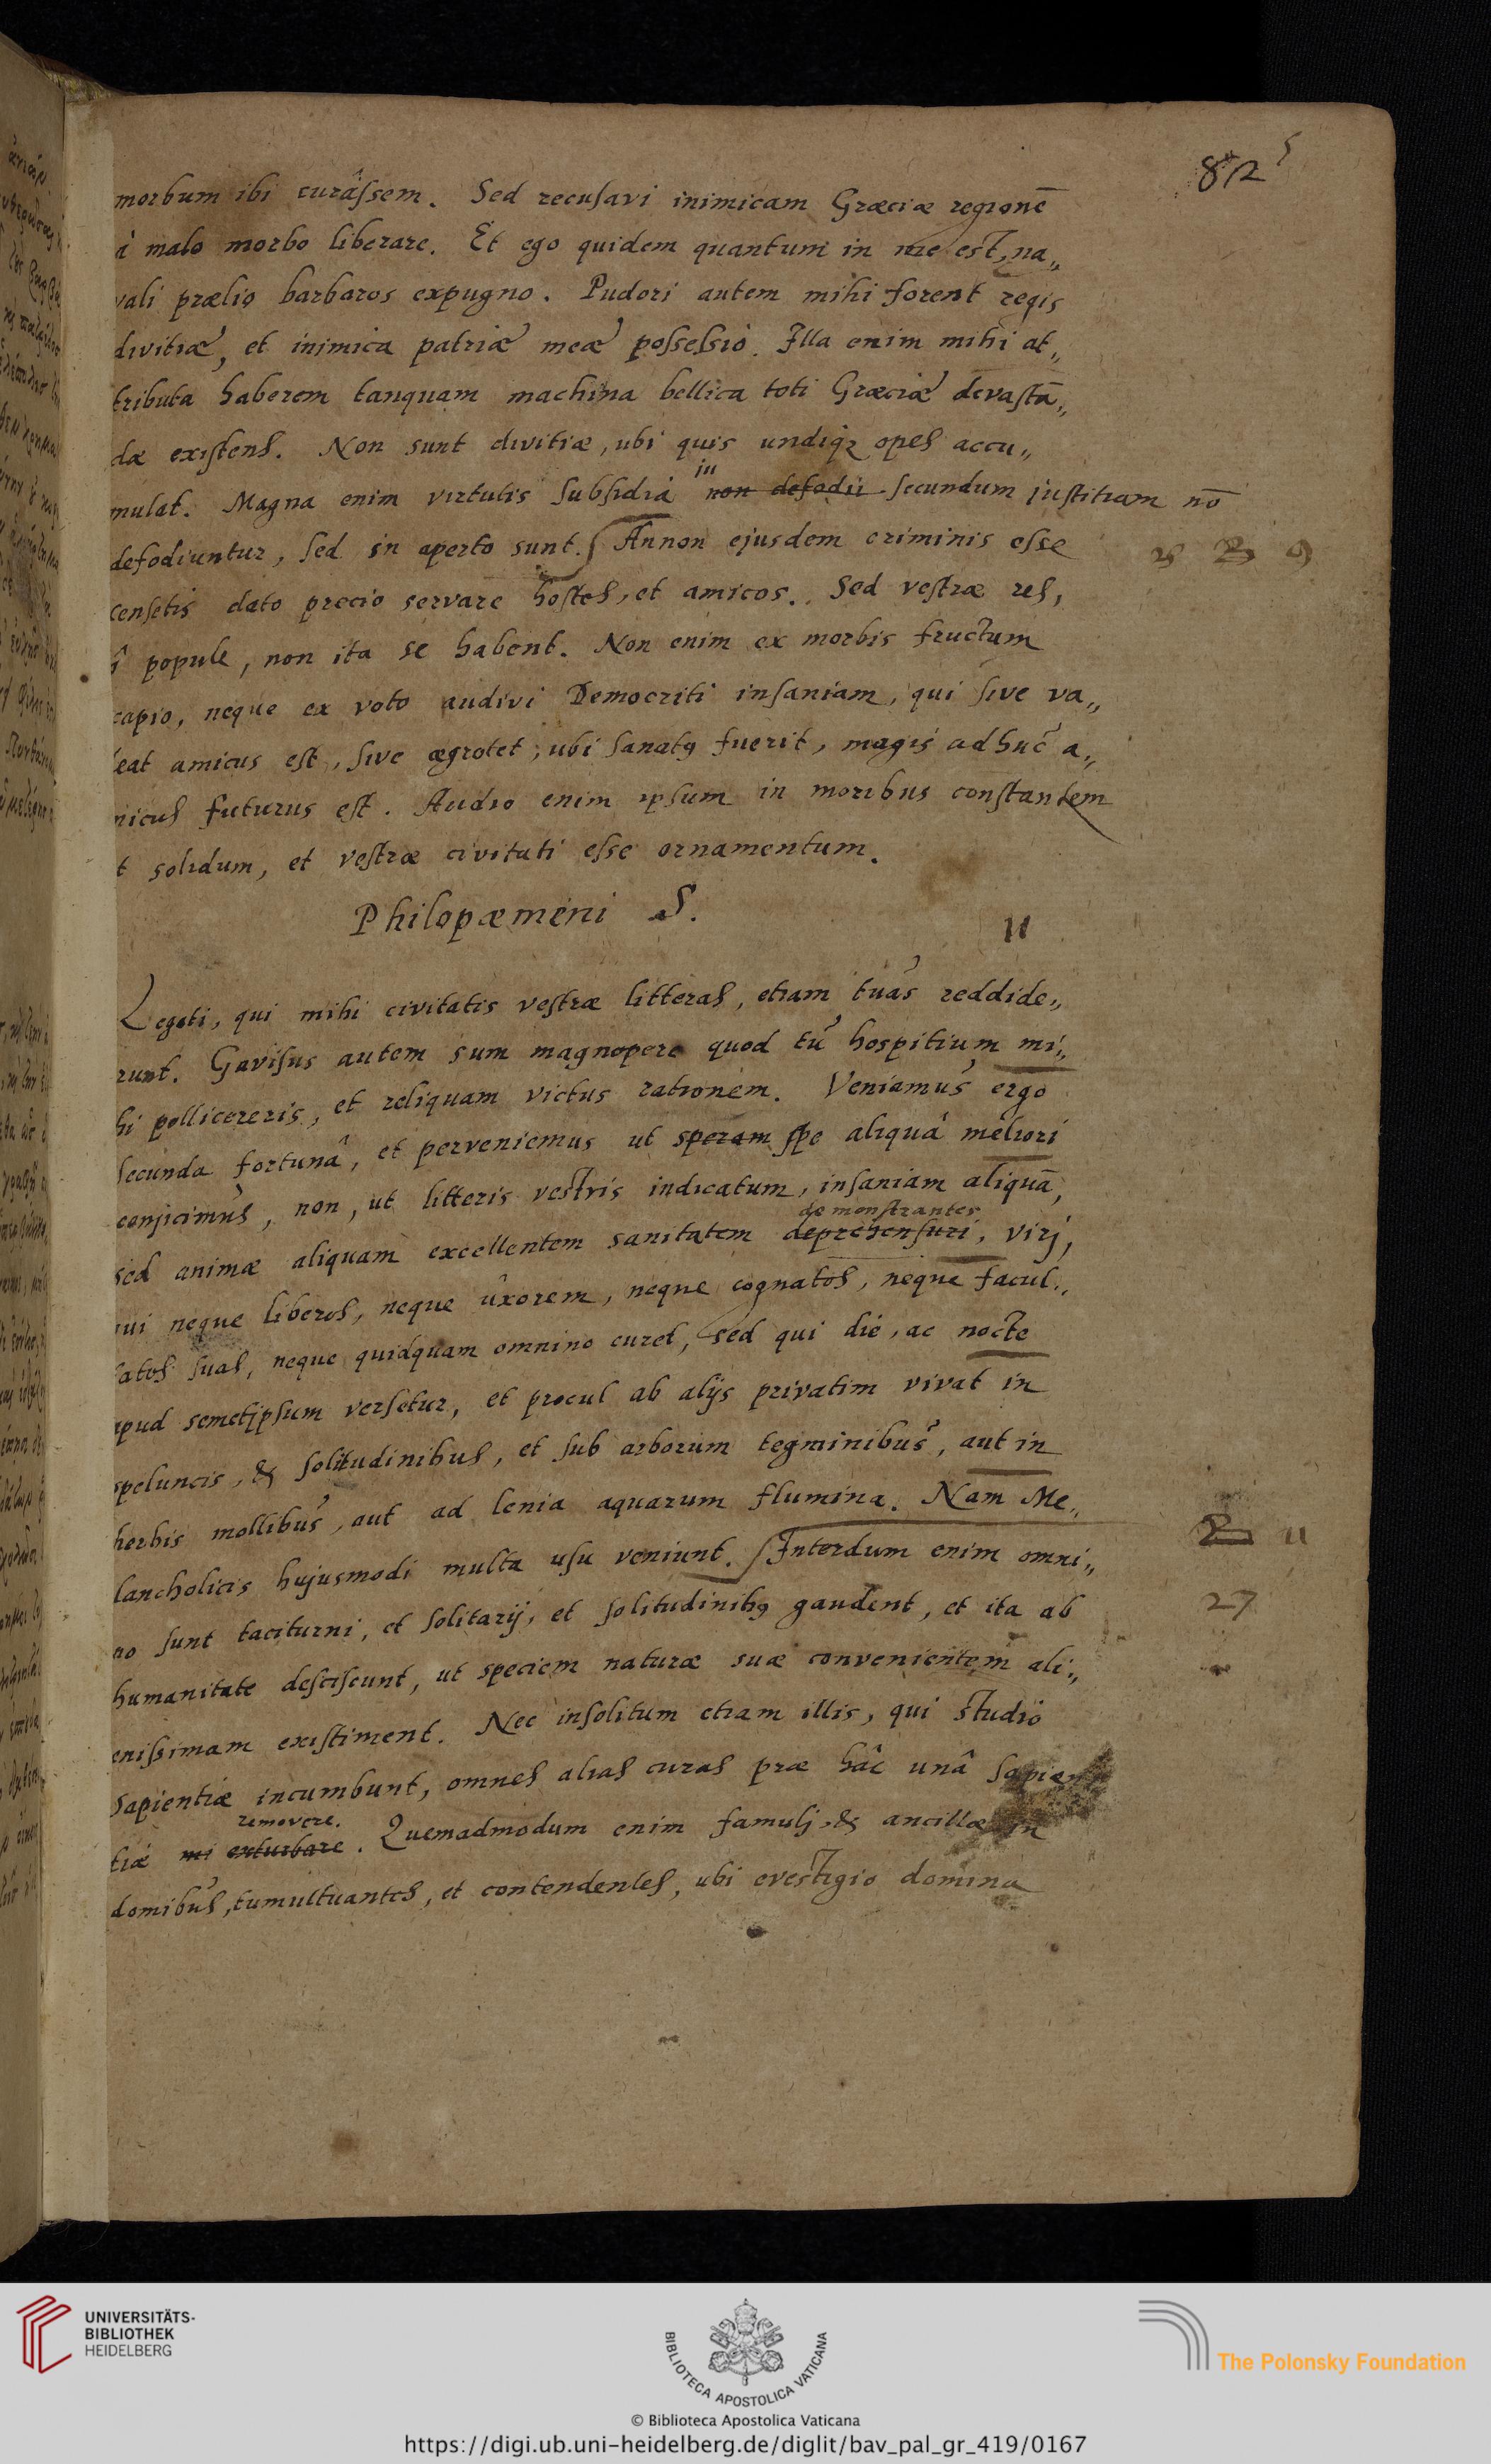 82 5
morbum ibi curâssem. Sed recusavi inimicam Græciæ regionē
à malo morbo liberare. Et ego quidem quantum in me est, na„
vali prælio barbaros expugno. Pudori autem mihi forent regis
divitiæ, et inimica patriæ meæ possessio. Illa enim mihi at„
tributa haberem tanquam machina bellica toti Græciæ devastā„
dæ existens. Non sunt divitiæ, ubi quis undiq₃ opes accu„
in
mulat. Magna enim virtutis subsidia non defodii secundum justitiam nō
defodiuntur, sed in aperto sunt. Annon ejusdem criminis esse
censetis dato precio servare hostes, et amicos. Sed vestræ res,
ô popule, non ita se habent. Non enim ex morbis fructum
capio, neque ex voto audivi Democriti insaniam, qui sive va„
leat amicus est, sive ægrotet; ubi sanatꝰ fuerit, magis adhuc a„
micus futurus est. Audio enim ipsum in moribus constantem
t solidum, et vestræ civitati esse ornamentum.
Philopæmeni S.
11
Legati, qui mihi civitatis vestræ litteras, etiam tuas reddide„
runt. Gavisus autem sum magnopere quod tu hospitium mi„
hi pollicereris, et reliquam victus rationem. Veniamus ergo
secunda fortunâ, et perveniemus ut speram spe aliquâ meliori
conjicimus, non, ut litteris vestris indicatum, insaniam aliquā,
demonstrantes
sed animæ aliquam excellentem sanitatem deprehensuri, virj,
qui neque liberos, neque uxorem, neque cognatos, neque facul„
tates suas, neque quidquam omnino curet, sed qui die, ac nocte
apud semetjpsum versetur, et procul ab alijs privatim vivat in
speluncis, & solitudinibus, et sub arborum tegminibus, aut in
herbis mollibus, aut ad lenia aquarum flumina. Nam Me„
lancholicis hujusmodi multa usu veniunt. Interdum enim omni„
11
no sunt taciturni, et solitarij, et solitudinibꝰ gaudent, et ita ab
27
humanitate desciscunt, ut speciem naturæ suæ convenientem ali„
enissimam existiment. Nec insolitum etiam illis, qui studio
sapientiæ incumbunt, omnes alias curas præ hâc unâ sapien
removere.
tiæ mi exturbare. Quemadmodum enim famulj, & ancillæ in
domibus, tumultuantes, et contendentes, ubi evestigio domina
UNIVERSITÄTS-
BIBLIOTHEK
HEIDELBERG
BIBLIOTECA APOSTOLICA VATICANA
The Polonsky Foundation
© Biblioteca Apostolica Vaticana
https://digi.ub.uni-heidelberg.de/diglit/bav_pal_gr_419/0167